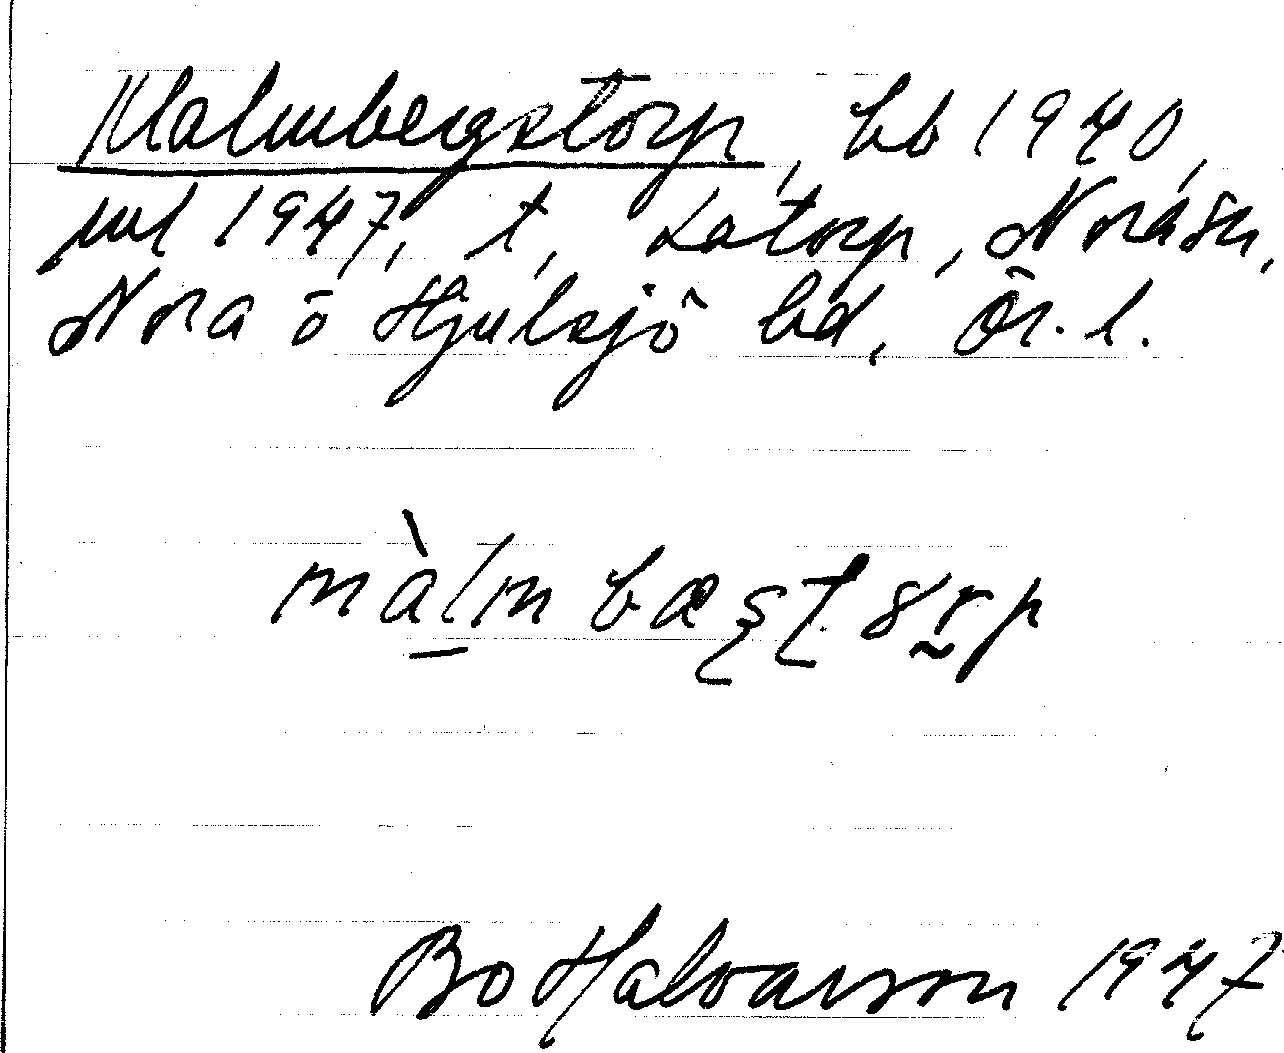 Malmbergstorp, bb 1940,
jvl 1947, t, Latorp, Norasn,
Nora ö Hjulsjö bd, Ör. l.
màlmbæşţ.
Bo Halvarson 1947